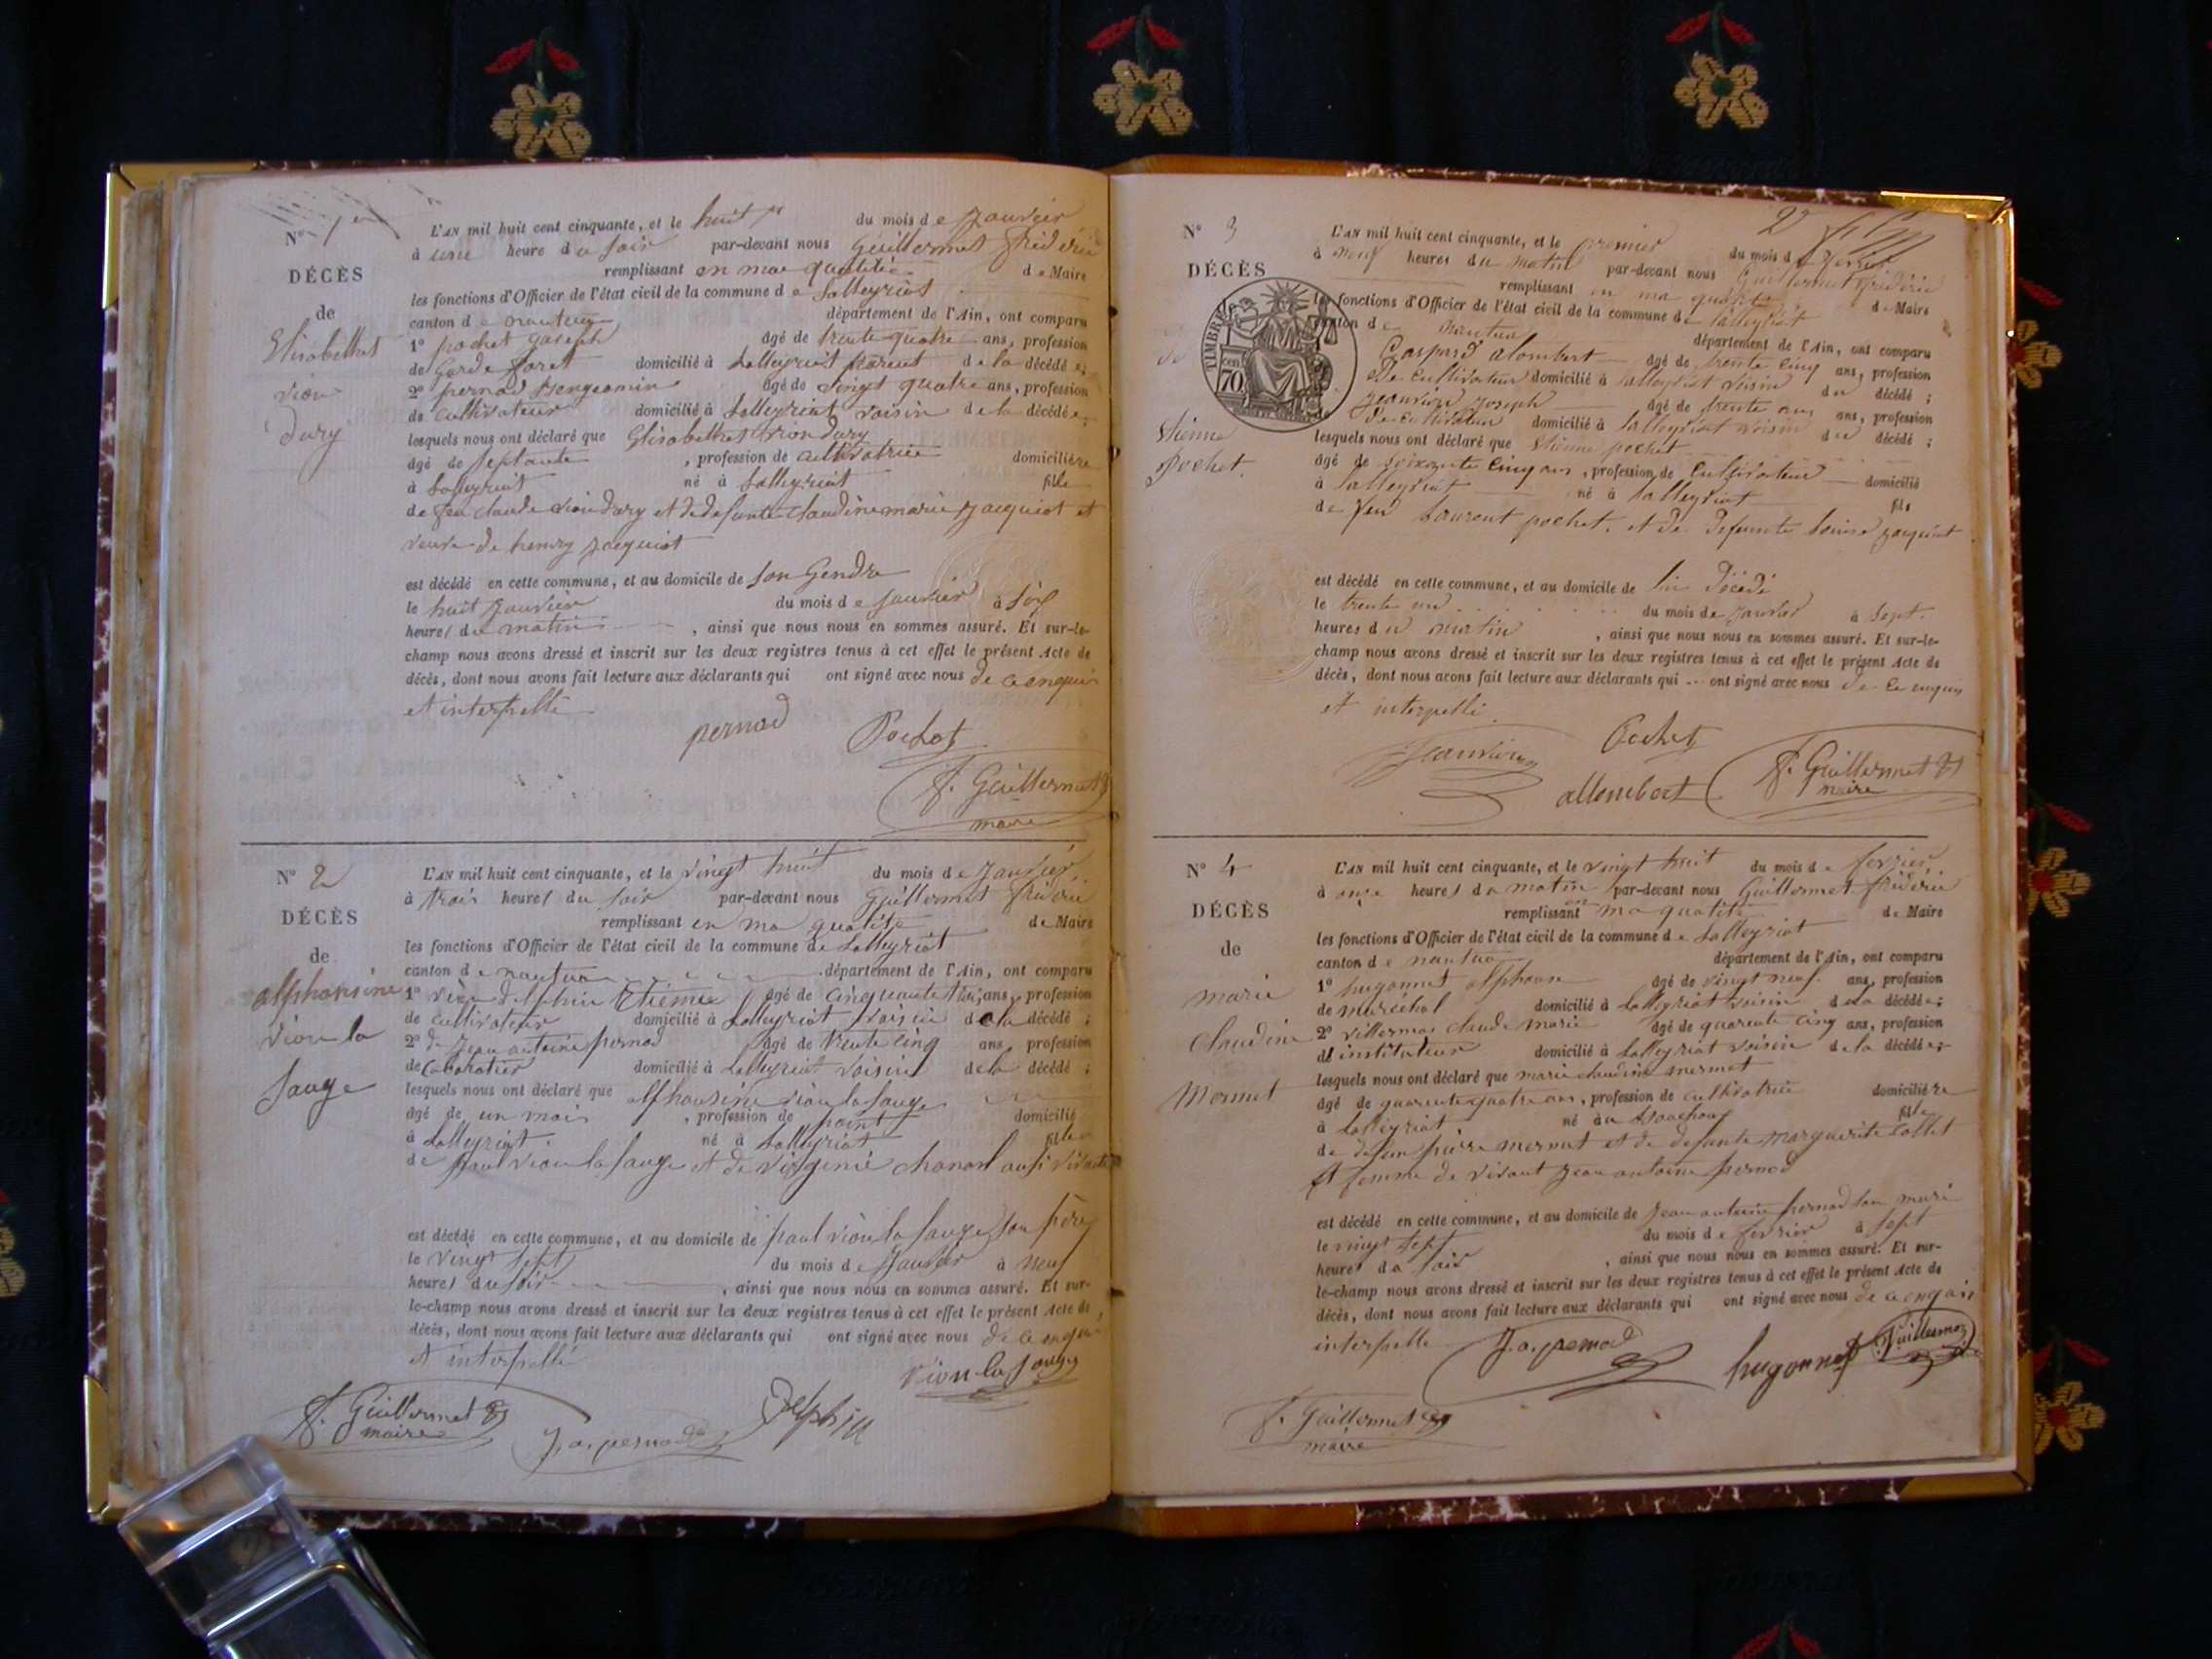 N° 1er
DÉCÈS
de
Elisabethet
vion
dury
L'AN mil huit cent cinquante, et le huit du mois de Janvier
à une heure du soir par-devant nous Guillermet frédéric
remplissant en ma qualitée de Maire
les fonctions d'Officier de l'état civil de la commune de Lalleyriat
canton de nantua département de l'Ain, ont comparu
1° pochet Joseph âgé de trente quatre ans, profession
de Garde foret domicilié à Lalleyriat parent de la décédée;
2° pernod âgé de vingt quatre ans, profession
de cultivateur domicilié à Lalleyriat voisin de la décédée;
lesquels nous ont déclaré que Elisabethet vion dury
âgé de septante , profession de cultivatrice domicilière
à Lalleyriat né à Lalleyriat fille
de feu claude vion dury et de defunte claudine marie Jacquiot et
veuve de henry Jacquiot
est décédé en cette commune, et au domicile de son Gendre
le huit Janvier du mois de Janvier à six
heures du matin , ainsi que nous nous en sommes assuré. Et sur-le-
champ nous avons dressé et inscrit sur les deux registres tenus à cet effet le présent Acte de
décès, dont nous avons fait lecture aux déclarants qui ont signé avec nous de ce enquis
et interpellé
pernod Pochet
F. Guillermet
maire
N° 2
DÉCÈS
de
alphonsine
vion la
sauge
L'AN mil huit cent cinquante, et le vingt huit du mois de Janvier
à trois heures du soir par-devant nous Guillermet frédéric
remplissant en ma qualité de Maire
les fonctions d'Officier de l'état civil de la commune de Lalleyriat
canton de nantua département de l'Ain, ont comparu
1° vion delphin Etienne âgé de cinquante ans, profession
de cultivateur domicilié à Lalleyriat voisin de la décédé;
2° de Jean antoine pernod âgé de trente cinq ans, profession
de cabaratier domicilié à Lalleyriat voisin de la décédé;
lesquels nous ont déclaré que alphonsine vion la sauge
âgé de un mois , profession de point domicilié
à Lalleyriat né à Lalleyriat fille
de paul vion la sauge et de virginie chanal aussi vivante
est décédé en cette commune, et au domicile de paul vion la sauge son père
le vingt sept du mois de Janvier à neuf
heures du soir , ainsi que nous nous en sommes assuré. Et sur-
le-champ nous avons dressé et inscrit sur les deux registres tenus à cet effet le présent Acte de
décès, dont nous avons fait lecture aux déclarants qui ont signé avec nous de ce enquis
et interpellé
vion la sauge
F. Guillermet
maire J. a. pernod Delphin
22
N° 3
DÉCÈS
de
Etienne
Pochet
TIMBRE
70 cen
L'AN mil huit cent cinquante, et le premier du mois de fevrier
à neuf heures du matin par-devant nous Guillermet frédéric
remplissant en ma qualité de Maire
les fonctions d'Officier de l'état civil de la commune de Lalleyriat
canton de nantua département de l'Ain, ont comparu
Gaspard alombert âgé de trente cinq ans, profession
de cultivateur domicilié à Lalleyriat voisin du décédé;
Jeanvion Joseph âgé de trente ans, profession
de cultivateur domicilié à Lalleyriat voisin du décédé;
lesquels nous ont déclaré que Etienne pochet
âgé de soixante cinq ans, profession de cultivateur domicilié
à Lalleyriat né à Lalleyriat fils
de feu Laurent pochet. et de defunte Louise Jacquiot
est décédé en cette commune, et au domicile de lui décédé
le trente un du mois de Janvier à sept.
heures du matin , ainsi que nous nous en sommes assuré. Et sur-le-
champ nous avons dressé et inscrit sur les deux registres tenus à cet effet le présent Acte de
décès, dont nous avons fait lecture aux déclarants qui ont signé avec nous de ce enquis
et interpellé
Jeanvion Pochet
allombert F. Guillermet
maire
N° 4
DÉCÈS
de
marie
claudine
Mermet
L'AN mil huit cent cinquante, et le vingt huit du mois de fevrier
à onze heures du matin par-devant nous Guillermet frédéric
remplissant en ma qualité de Maire
les fonctions d'Officier de l'état civil de la commune de Lalleyriat
canton de nantua département de l'Ain, ont comparu
1° hugonnet alphonse âgé de vingt neuf ans, profession
de maréchal domicilié à Lalleyriat voisin de la décédée;
2° villermoz claude marie âgé de quarente cinq ans, profession
d'instituteur domicilié à Lalleyriat voisin de la décédée;
lesquels nous ont déclaré que marie claudine mermet
âgé de quarente quatre ans, profession de cultivatrice domicilière
à Lalleyriat né au fille
de defun pierre mermet et de defunte marguerite Collet
et femme de vivant Jean antoine pernod
est décédé en cette commune, et au domicile de Jean antoine pernod son mari
le vingt sept du mois de fevrier à sept
heures du soir , ainsi que nous nous en sommes assuré. Et sur-
le-champ nous avons dressé et inscrit sur les deux registres tenus à cet effet le présent Acte de
décès, dont nous avons fait lecture aux déclarants qui ont signé avec nous de ce enquis
interpelle J. a. pernod hugonnet
F. Guillermet
maire